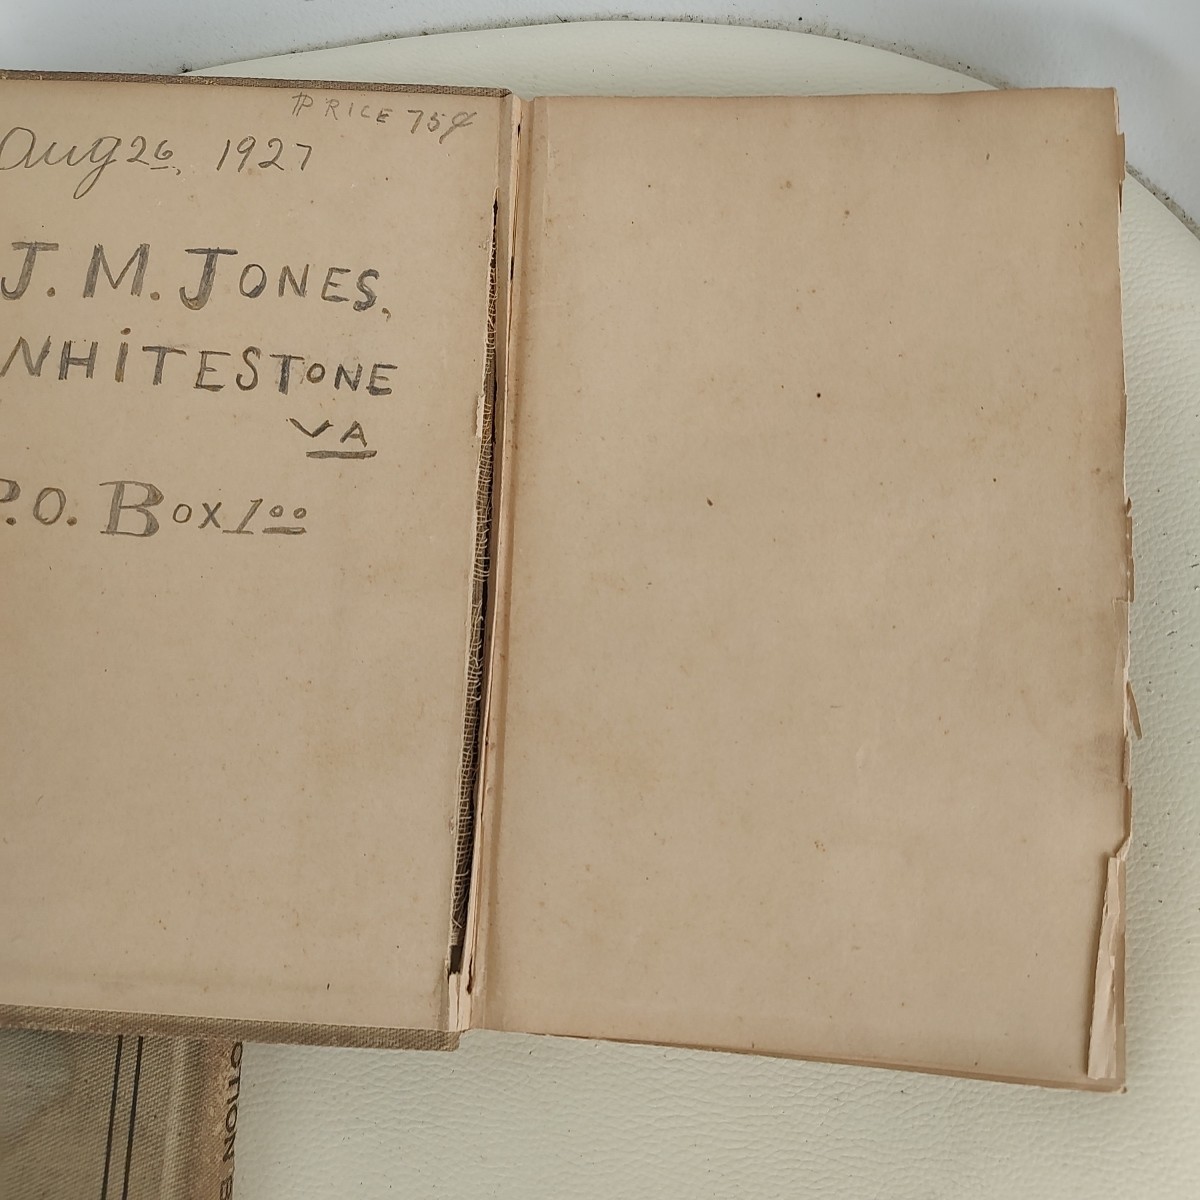 PRICE 75¢
Aug 26, 1927
J. M. JONES,
WHiTESTONE
VA
P.O. BOX 100
OTION